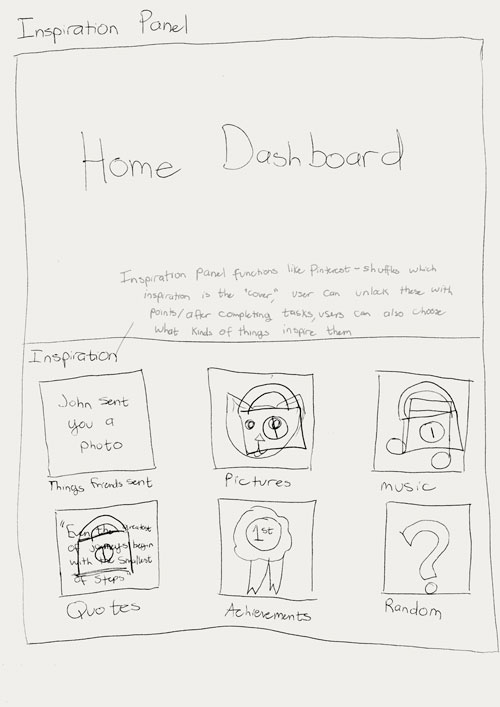 Inspiration Panel
Home Dashboard
Inspiration panel functions like Pinterest - shuffles which
inspiration is the "cover," user can unlock these with
points/after completing tasks, users can also choose
what kinds of things inspire them
Inspiration
John sent
you a
photo
Things friends sent
Pictures
music
"Even the greatest
of journeys begin
with the smallest
of steps"
Quotes
1st
Achievements
?
Random